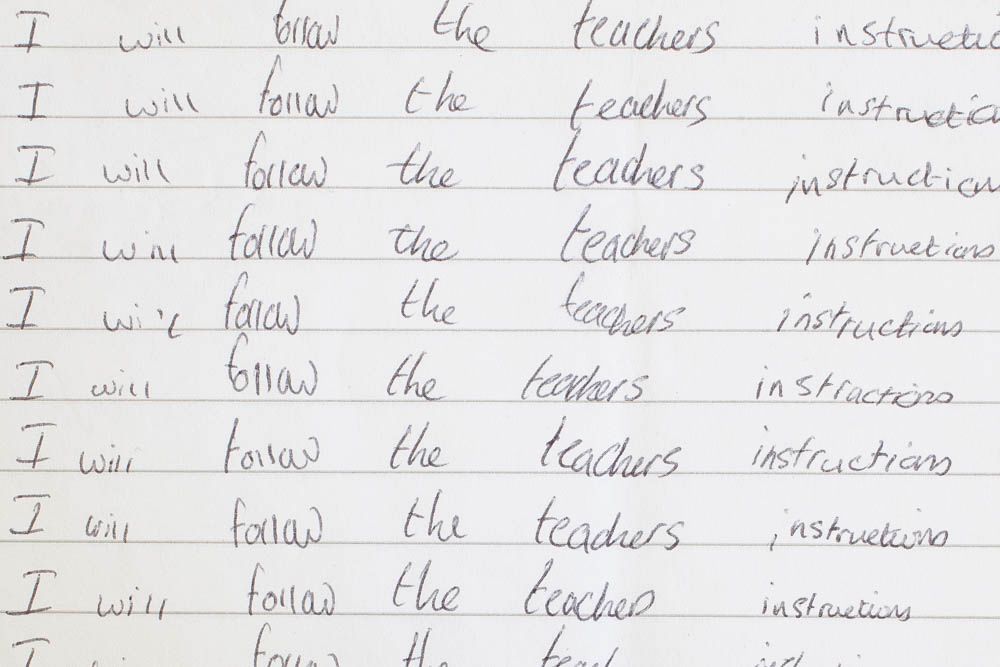 I will follow the teachers instructio
I will follow the teachers instruction
I will follow the teachers instruction
I will follow the teachers instructions
I will follow the teachers instructions
I will follow the teachers instructions
I will follow the teachers instructions
I will follow the teachers instructions
I will follow the teachers instructions
I follow the